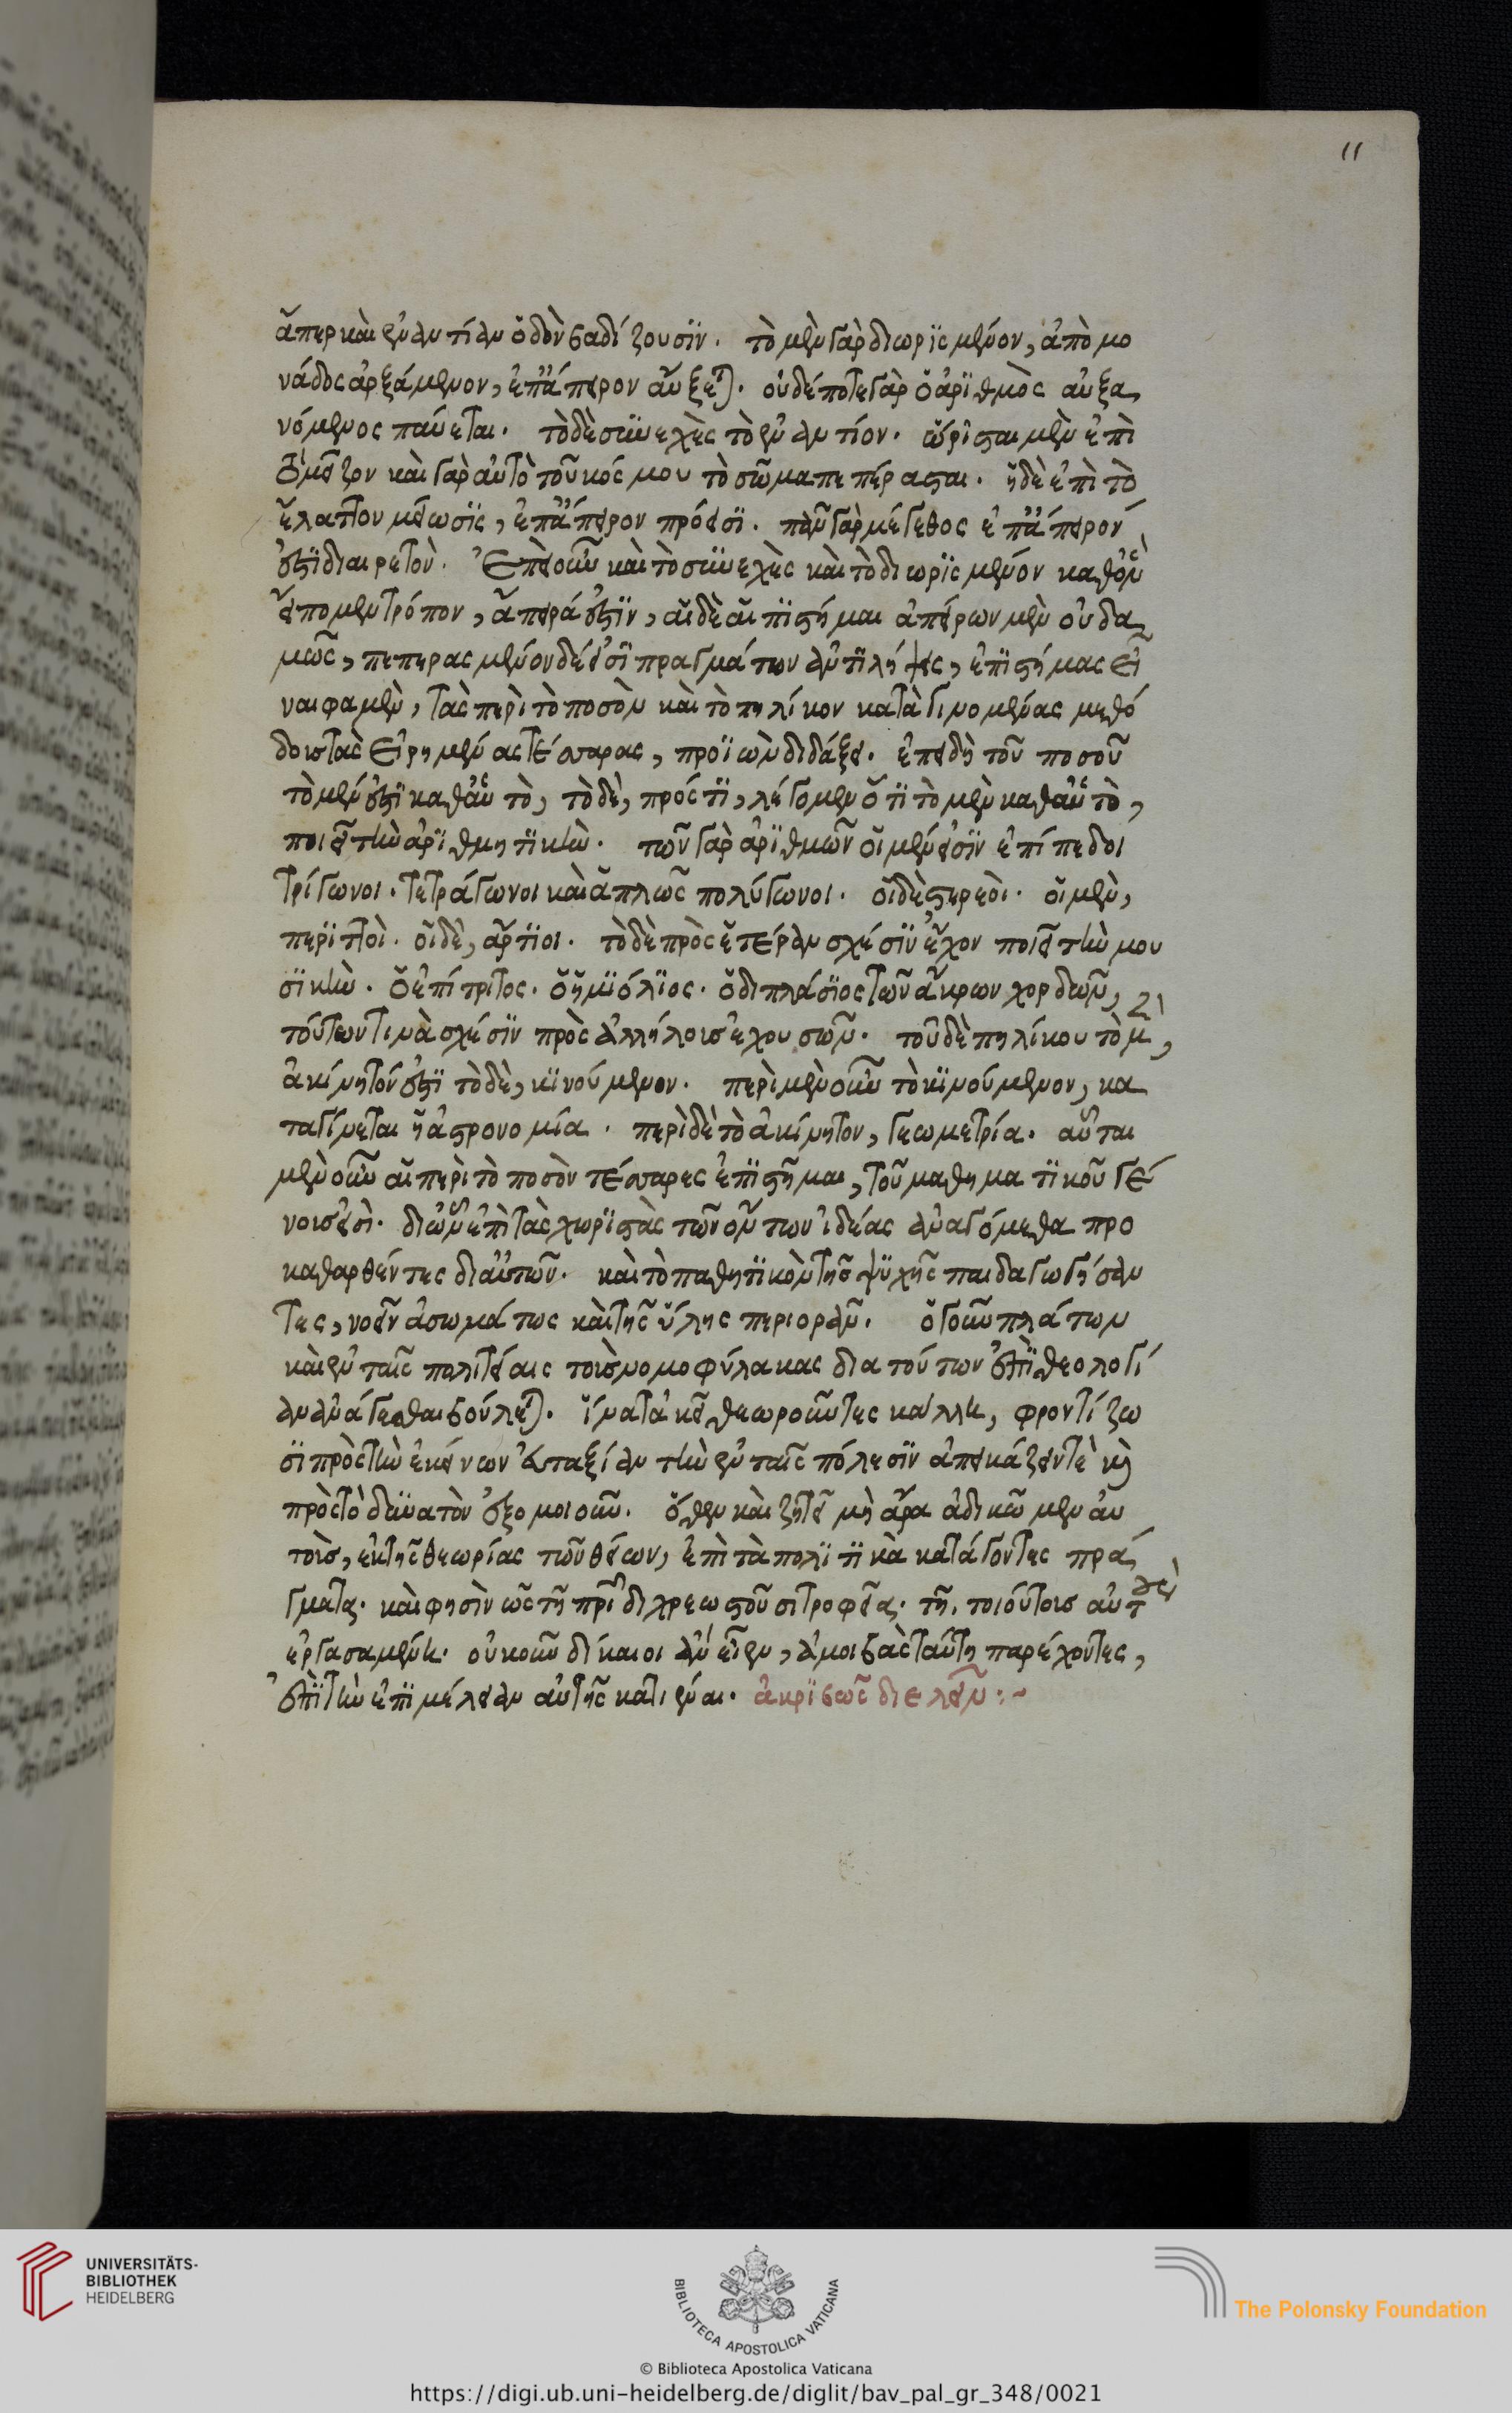 11
ἅπερ καὶ ἐναντίαν ὁδὸν βαδίζουσϊν. τὸ μὲν γὰρ διωρϊσμένον, ἀπὸ μο
νάδος ἀρξάμενον, ἐπ' ἄπειρον αὔξεται. οὐδέποτε γὰρ ὁ ἀρϊθμὸς αὐξα
νόμενος παύεται. τὸ δὲ συνεχὲς τὸ ἐναντίον. ὥρισται μὲν ἐπὶ
τὸ μεῖζον καὶ γὰρ αὐτὸ τοῦ κόσμου τὸ σῶμα πεπέρασται. ἡ δὲ ἐπὶ τὸ
ἔλαττον μείωσϊς, ἐπ' ἄπειρον πρόεισϊ. πᾶν γὰρ μέγεθος ἐπ' ἄπειρόν
ἐστϊ διαιρετὸν. Ἐπεὶ οὖν καὶ τὸ συνεχὲς καὶ τὸ διωρϊσμένον καθ' ὃν
εἴπομεν τρόπον, ἄπειρά ἐστϊν, αἱ δὲ ἐπϊστήμαι ἀπείρων μὲν οὐδα
μῶς, πεπερασμένον δέ εἰσϊ πραγμάτων ἀντϊλήψεις, ἐπϊστήμας εἶ
ναι φαμὲν, τὰς περὶ τὸ ποσὸν καὶ τὸ πηλίκον καταγινομένας μεθό
δοις τὰς εἰρημένας τέσσαρας, προϊὼν διδάξει. ἐπειδὴ τοῦ ποσοῦ
τὸ μέν ἐστϊ καθ' αὑτὸ, τὸ δὲ, πρός τϊ, λέγομεν ὅτϊ τὸ μὲν καθ' αὑτὸ,
ποιεῖ τὴν ἀρϊθμητϊκὴν. τῶν γὰρ ἀρϊθμῶν οἱ μέν εἰσϊν ἐπίπεδοι
τρίγωνοι. τετράγωνοι καὶ ἁπλῶς πολύγωνοι. οἱ δὲ στερεοὶ. οἱ μὲν,
περϊττοὶ. οἱ δὲ, ἄρτϊοι. τὸ δὲ πρὸς ἕτεραν σχέσϊν ἔχον ποιεῖ τὴν μου
σϊκὴν. ὁ ἐπίτριτος. ὁ ἡμϊόλϊος. ὁ διπλάσϊος τῶν ἄκρων χορδῶν,
τούτων τινὰ σχέσϊν πρὸς ἀλλήλοις ἐχουσῶν. τοῦ δὲ πηλίκου τὸ μ,
ἀκίνητόν ἐστϊ τὸ δὲ, κϊνούμενον. περὶ μὲν οὖν τὸ κϊνούμενον, κα
ταγίνεται ἡ ἀστρονομία. περὶ δὲ τὸ ἀκίνητον, γεωμετρία. αὗται
μὲν οὖν αἱ περὶ τὸ ποσὸν τέσσαρες ἐπϊστῆμαι, τοῦ μαθηματϊκοῦ γέ
νοις εἰσὶ. δι' ὧν ἐπὶ τὰς χωρϊστὰς τῶν ὄντων ἰδέας ἀναγόμεθα προ
καθαρθέντες δι' αὐτῶν. καὶ τὸ παθητϊκὸν τῆς ψϋχῆς παιδαγωγήσαν
τες, νοεῖν ἀσωμάτως καὶ τῆς ὕλης περιορᾶν. ὁ γοῦν πλάτων
καὶ ἐν ταῖς πολιτείαις τοὺς νομοφύλακας δια τούτων ἐπϊ θεολογί
αν ἀνάγεσθαι βούλεται. ἵνα τἀκεῖ θεωροῦντες κάλλη, φροντίζω
σϊ πρὸς τὴν ἐκείνων εὐταξίαν τὴν ἐν ταῖς πόλεσϊν ἀπεικάζειν τὲ καὶ
πρὸς τὸ δυνατὸν ἐξομοιοῦν. ὅθεν καὶ ζητεῖ μὴ ἄρα ἀδικῶμεν αὐ
τοὺς, ἐκ τῆς θεωρίας τῶν θείων, ἐπὶ τὰ πολϊτϊκὰ κατάγοντες πρά
γματα. καὶ φησὶν ὡς τῆ πρίδι χρεωστοῦσι τροφεῖα. τῆ, τοιούτοις αὐτ
ἐργασαμένη. οὐκοῦν δίκαιοι ἂν εἶεν, ἀμοιβὰς ταύτη παρέχοντες,
ἐπϊ τὴν ἐπϊμέλειαν αὐτῆς κατιέναι. ἀκρϊβῶς διελεῖν:~
UNIVERSITÄTS-
BIBLIOTHEK
HEIDELBERG
BIBLIOTECA APOSTOLICA VATICANA
The Polonsky Foundation
© Biblioteca Apostolica Vaticana
https://digi.ub.uni-heidelberg.de/diglit/bav_pal_gr_348/0021